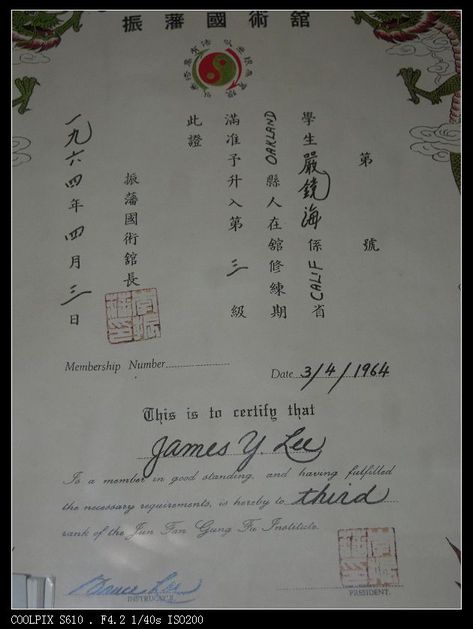 振藩國術舘
第 號
學生嚴鏡海係CALIF省
OAKLAND縣人在舘修練期
滿准予升入第三級
此證
振藩國術舘長
一九六四年四月三日
Membership Number
Date 3/4/1964
This is to certify that
James Y. Lee
Is a member in good standing, and having fulfilled
the necessary requirements, is hereby to third
rank of the Jun Fan Gung Fu Institute.
Bruce Lee
INSTRUCTOR
PRESIDENT.
COOLPIX S610 . F4.2 1/40s ISO200